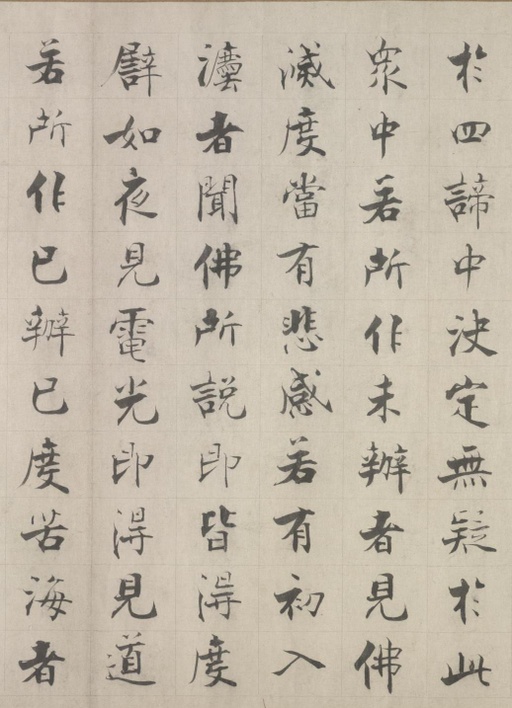 於四諦中決定無疑於此
眾中若所作未辦者見佛
滅度當有悲感若有初入
法者聞佛所說即皆得度
譬如夜見電光即得見道
若所作已辦已度苦海者